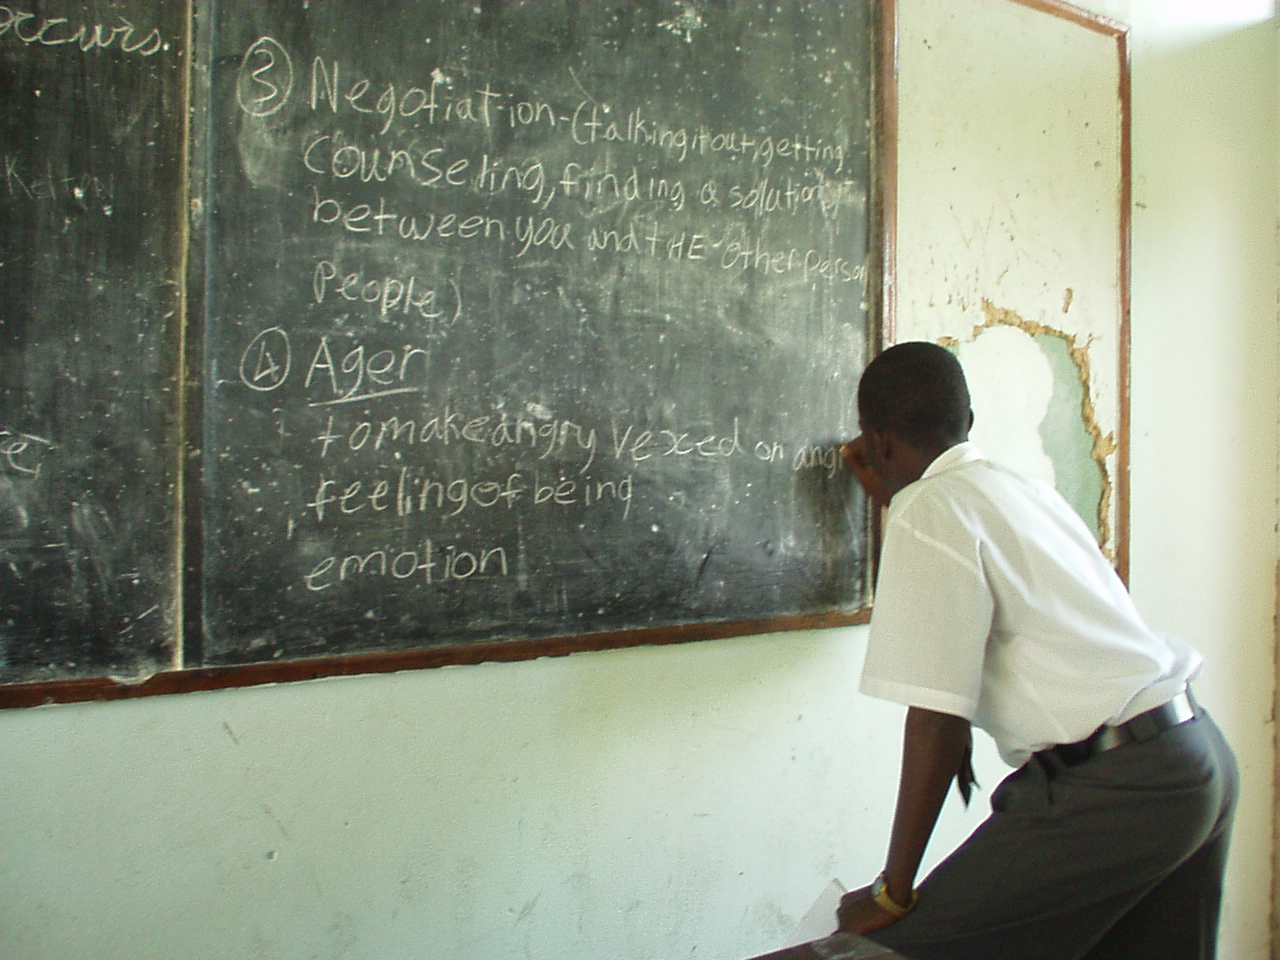 occurs.
Kelten
③ Negotiation-(talking it out, getting
counseling, finding a solution
between you and tHE other person
people)
④ Ager
to make angry vexed on angr
feeling of being
emotion